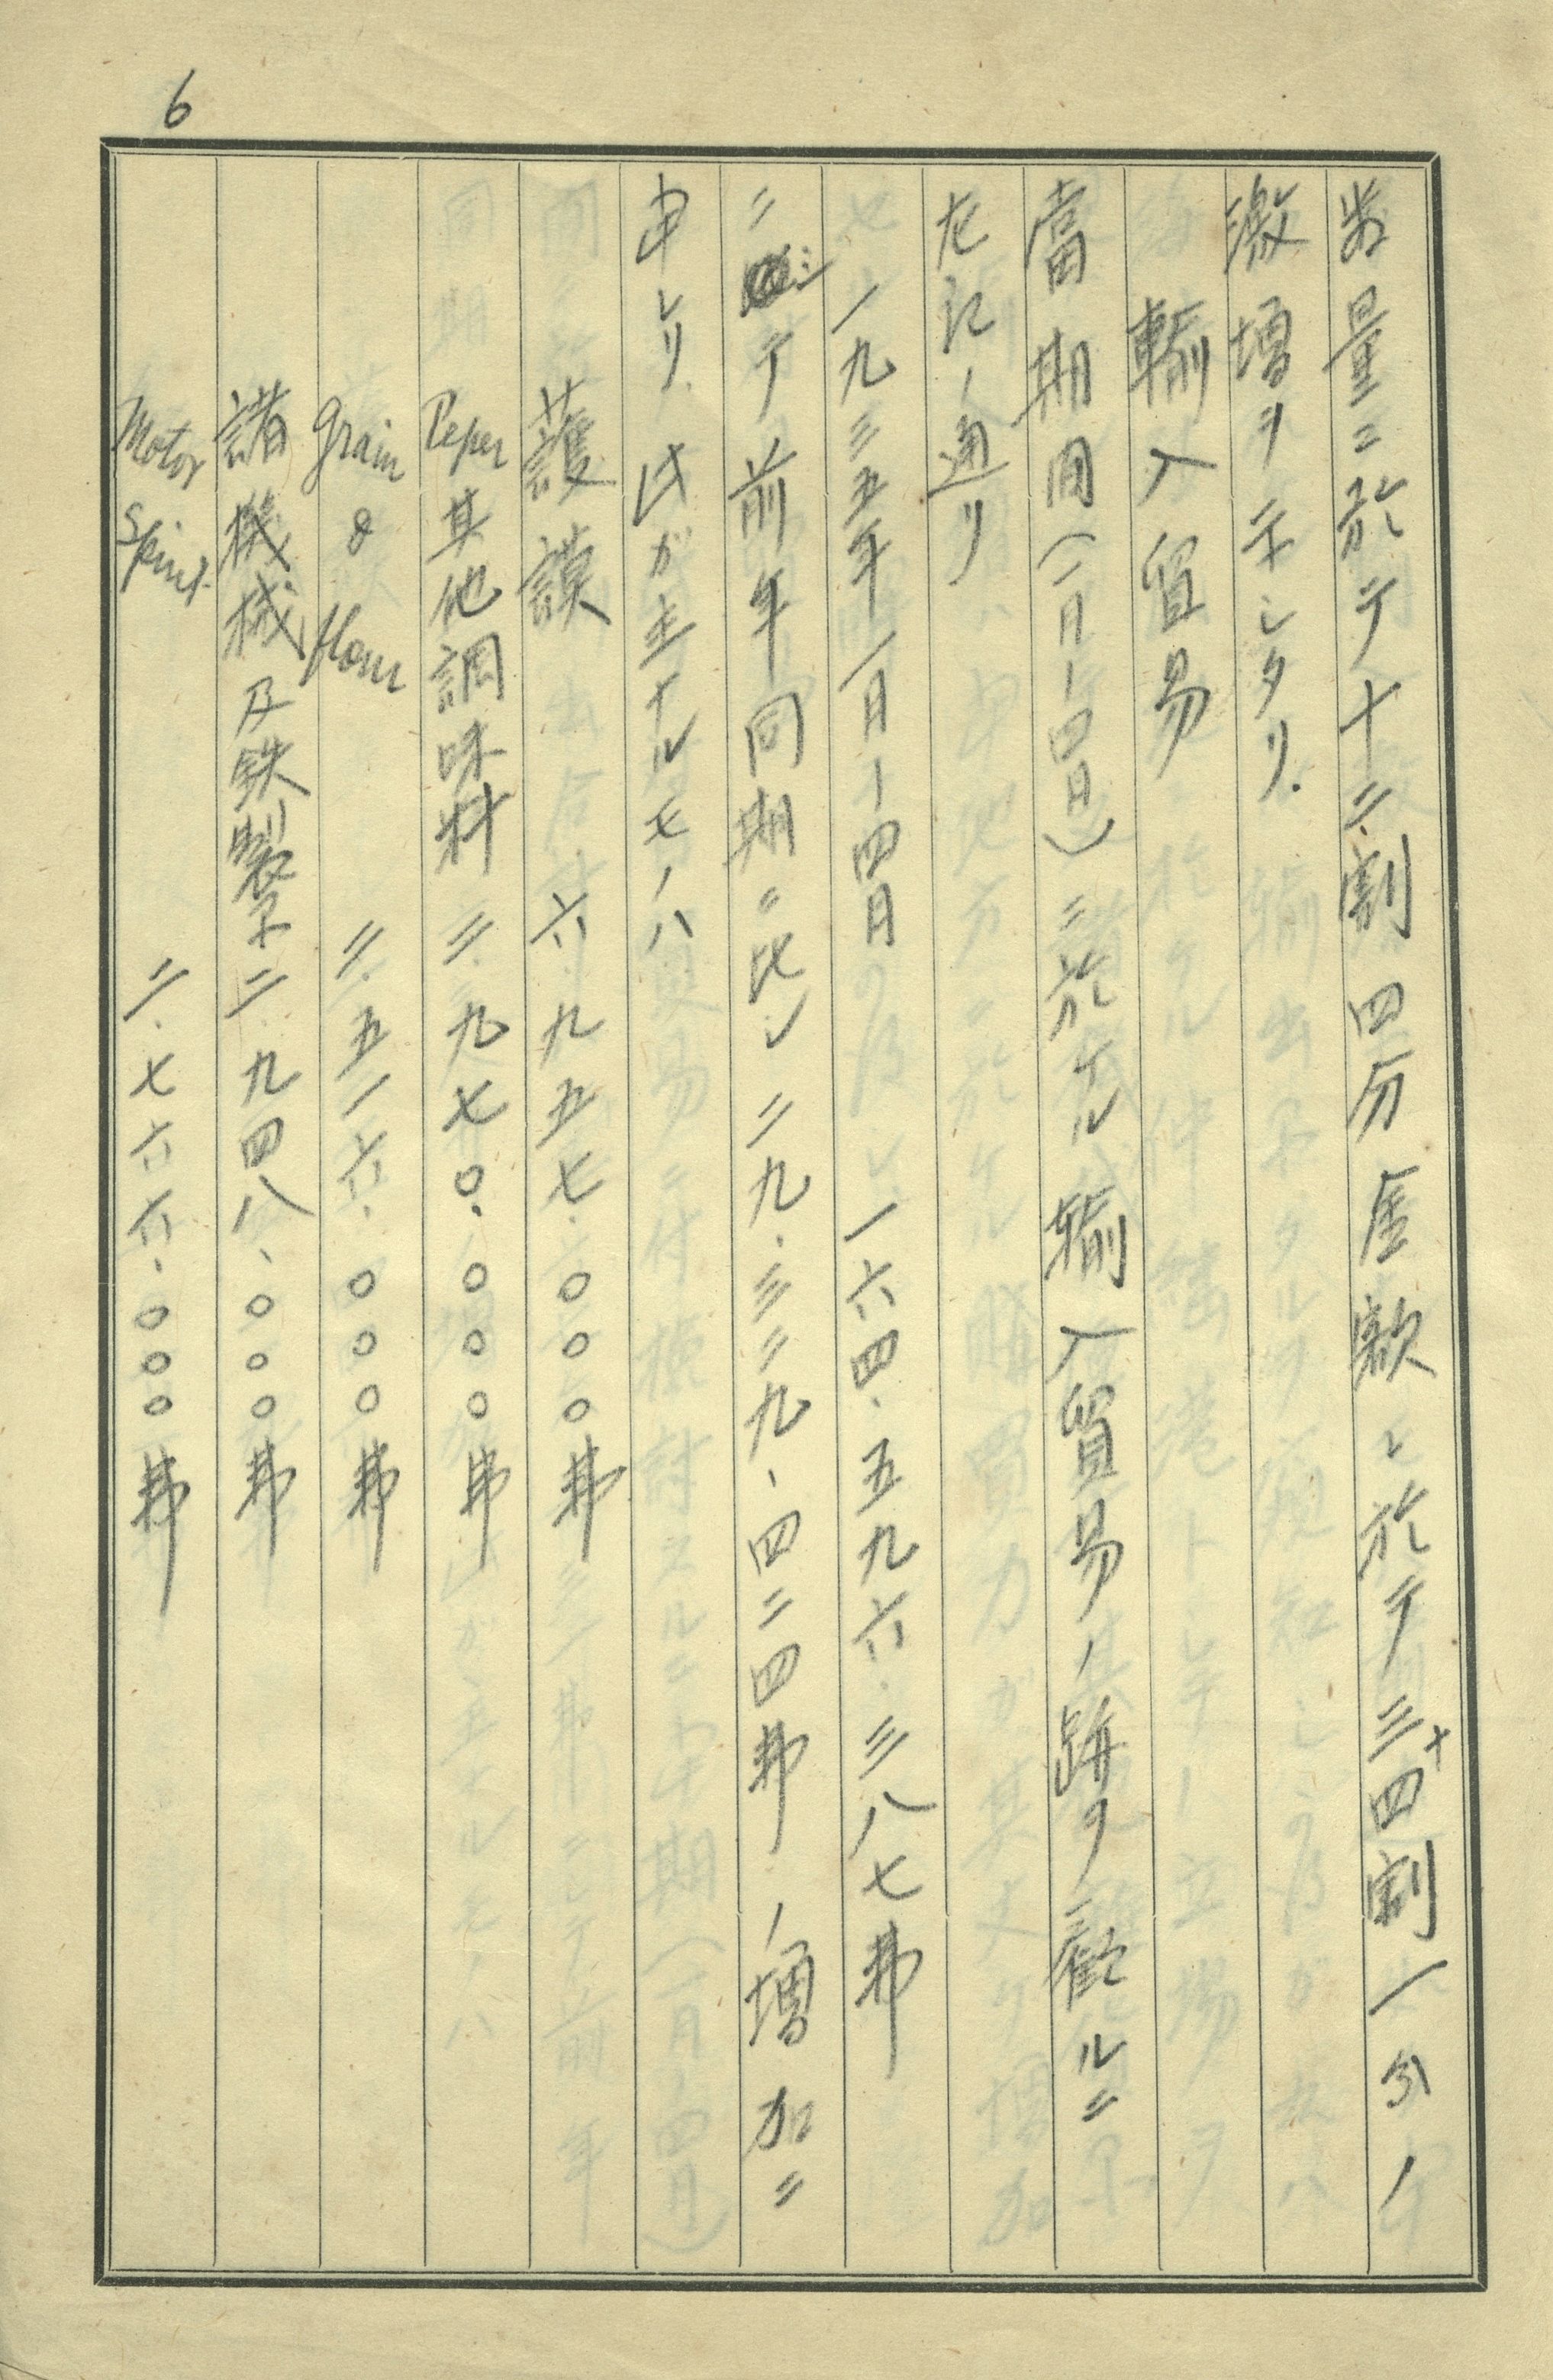 6
尚量ニ於テ十二割四分金額ニ於テ三十四割一分ノ
激増ヲ示シタリ.
輸入貿易
當期間(一月ー四月)ニ於ケル輸入貿易ノ跡ヲ観ルニ
左記ノ通リ
一九三五年一月ー四月 一六四.五九六.三八七弗
ニシテ前年同期ニ比シ二九.三二九、四二四弗ノ増加ニ
申レリ.此ガ主ナルモノハ
護謨 六.九五七.〇〇〇弗
Peper其他調味料 三.九七〇.〇〇〇弗
Grain & flour 三.五一六.〇〇〇弗
諸機械及鉄製品 二.九四八、〇〇〇弗
Motor Spirit 二.七六六.〇〇〇弗